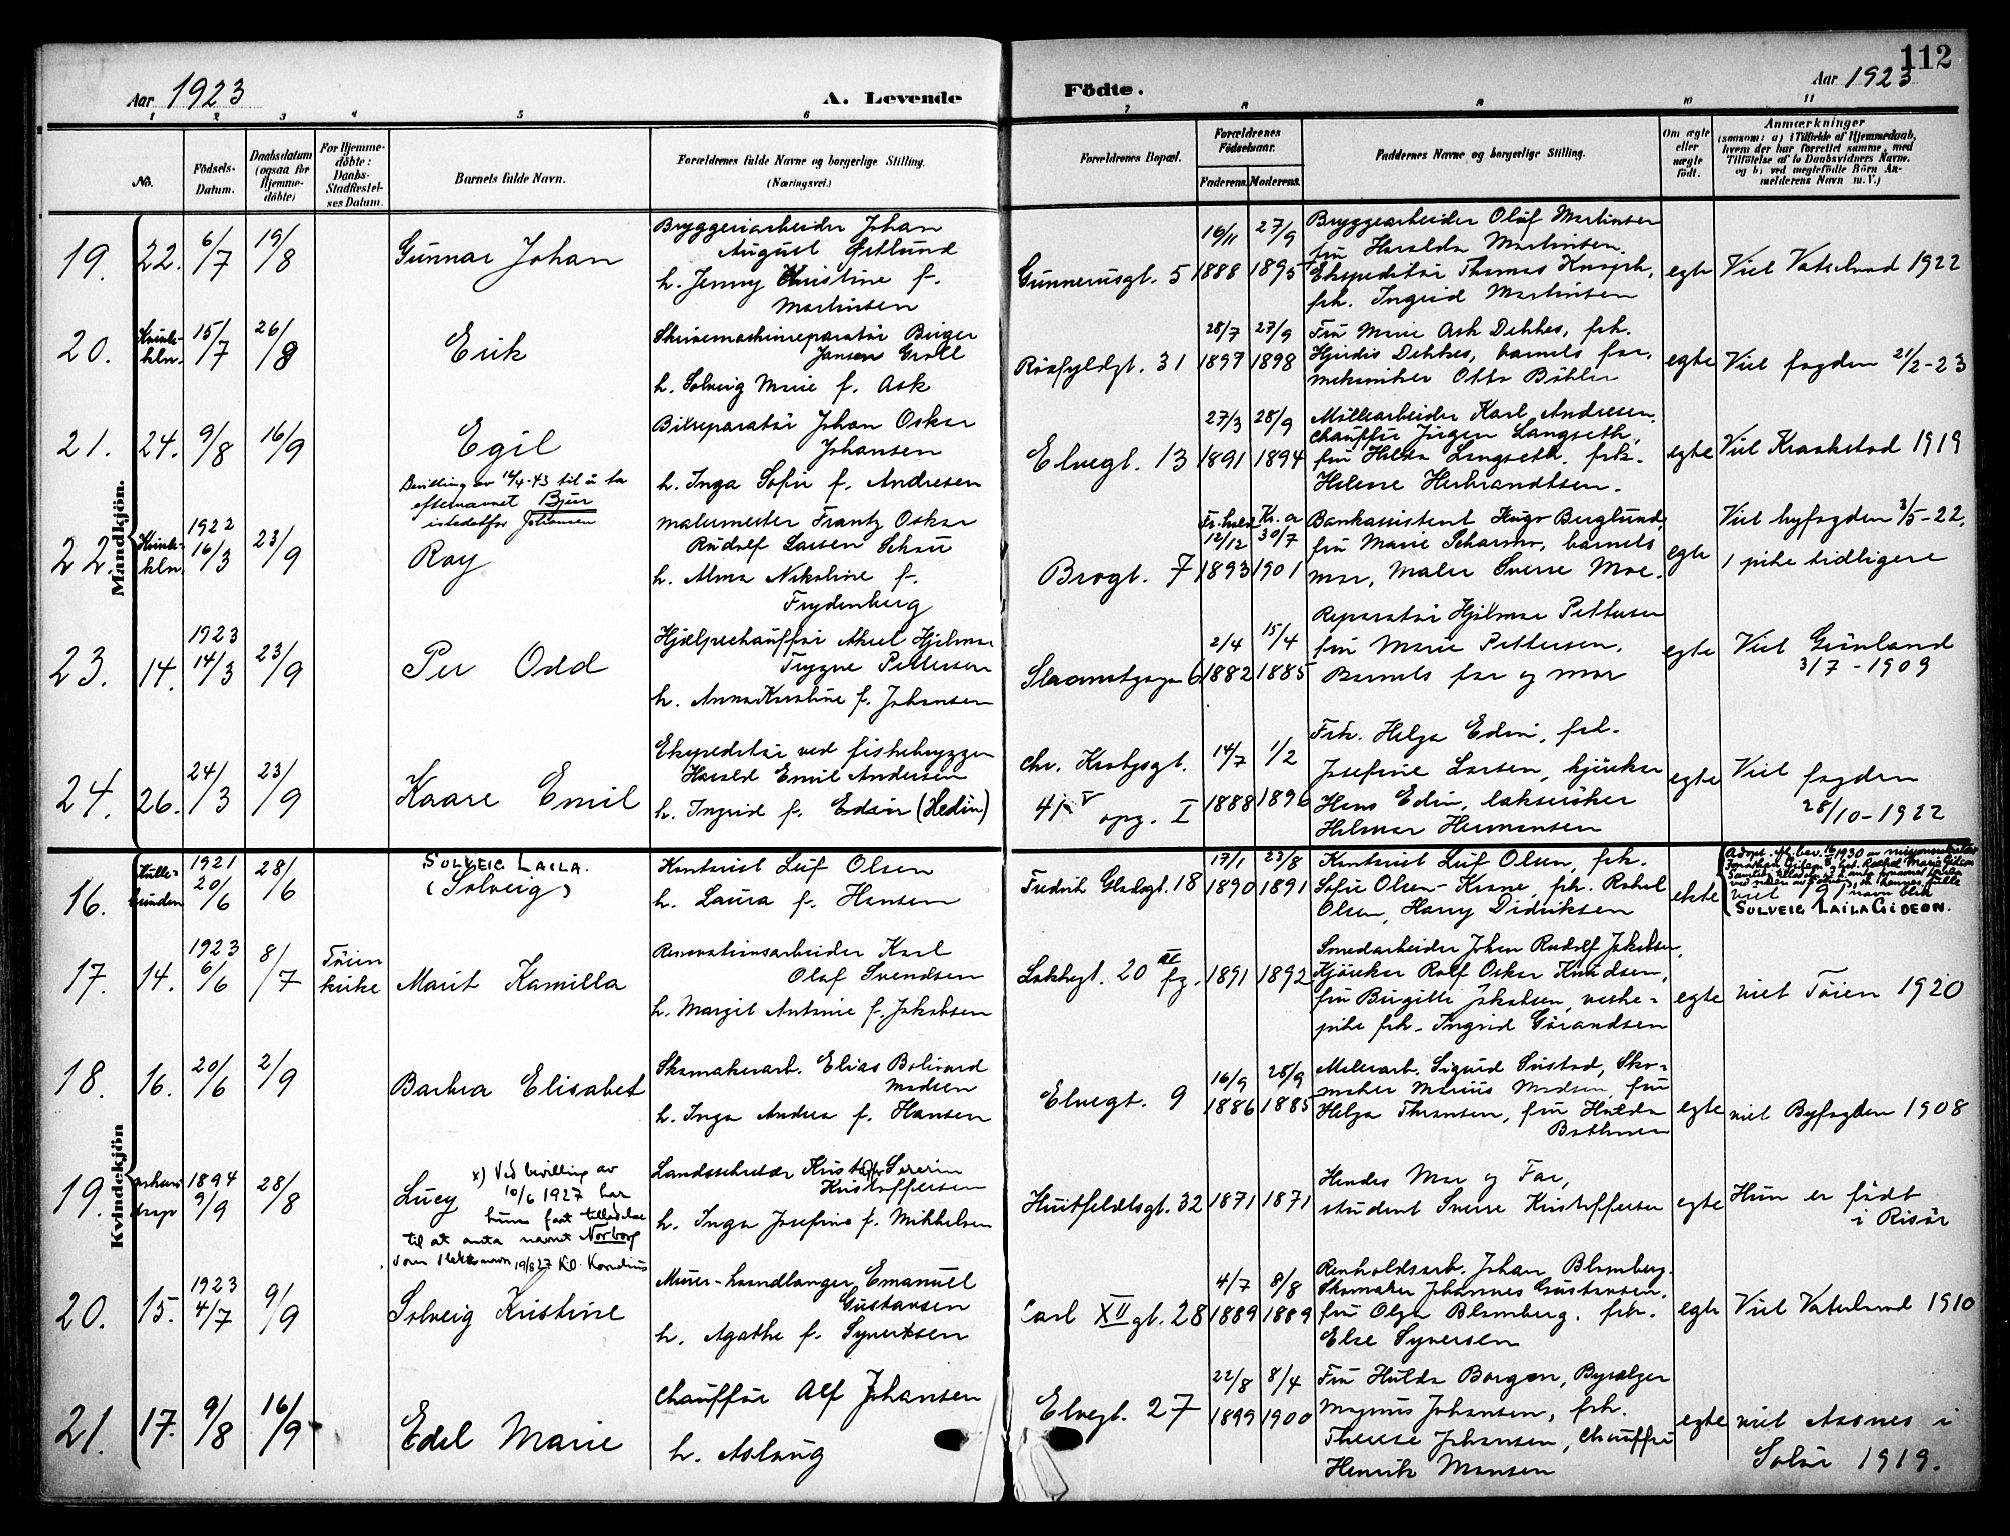 112
Aar 1923
A. Levende
Födte.
Aar 1923
1 2 3 4 5 6 7 8 9 10 11
No.
Födsels-Datum.
Daabsdatum (ogsaa for Hjemme-döbte)
For Hjemme-döbte: Daabs-Stadfæstel-ses Datum.
Barnets fulde Navn.
Forældrenes fulde Navne og borgerlige Stilling. (Næringsvei.)
Forældrenes Bopæl.
Forældrenes Födselsaar.
Faderens. Moderens.
Faddernes Navne og borgerlige Stilling.
Om ægte eller uægte födt.
Anmærkninger
(saasom: a) i Tilfælde af Hjemmedaab,
hvem der har forrettet samme, med
Tilföielse af to Daabsvidners Navne.
og b) ved uegtefödte Börn An-
melderens Navn m. V.)
Mandkjön.
19. 22. 6/7 19/8 Gunnar Johan
Bryggeriarbeider Johan
August Østlund
h. Jenny Kristine f.
Martinsen
Gunnerusgt. 5
16/11 1888 27/9 1895
Bryggearbeider Olaf Martinsen
fru Haralda Martinsen.
Ekspeditör Thomas
frk. Ingrid Martinsen
egte
Viet Vaterland 1922
20. Kvinde-kln. 15/7 26/8 Erik
Skrivemaskinreparatör Birger
Jansen Groll
h. Solveig Marie f. Ask
31
28/7 1897 27/9 1898
Fru Marie Ask Dehkes, frk.
Hjördis Dehkes, barnets far,
mekaniker Otto Böhler
egte
Viet fogden 21/2-23
21. 24. 9/8 16/9 Egil
Bevilling av 14/4-43 til å ta
efternavnet Bjur
istedetfor Johansen
Bilreparatör Johan Oskar
Johansen
h. Inga Sofie f. Andresen
Elvegt. 13
27/3 1891 28/9 1894
Möllearbeider Karl Andresen.
chaufför Jörgen Langseth,
fru Hilda Langseth. frk.
Helene Herbrandtsen.
egte
Viet Kraakstad 1919
22. Kvinde-kln. 1922 16/3 23/9 Roy
malermester Frantz Oskar
Rudolf Larsen Schou
h. Alma Nikoline f.
Frydenberg
Brogt. 7
12/12 1893 30/7 1901
Bankassistent Hugo Berglund
fru Marie Scharnov, barnets
mor, Maler Sverre Moe.
egte
Viet byfogden 3/5-22,
1 pike tidligere
23. 14. 1923 14/3 23/9 Per Odd
Hjælpechaufför Aksel Hjelmar
Trygve Pettersen
h. Anna Karoline f. Johansen
6
2/4 1882 15/4 1885
Reparatör Hjelmar Pettersen
fru Marie Pettersen.
Barnets far og mor
egte
Viet Grünland
3/7-1909
24. 26. 24/3 23/9 Kaare Emil
Ekspeditör ved fiskebryggen
Harald Emil Andersen
h. Ingrid f. Edin (Hedin)
Chr. Krohgsgt.
41 V opg. I
14/7 1888 1/2 1896
Frk. Helga Edin, frk.
Josefine Larsen, kjörer
Hans Edin, lakserisker
Hilmar Hermansen
egte
Viet fogden
28/10-1922
Kvindekjön
16. Kullelunden 1921 20/6 28/6 SOLVEIG LAILA.
(Solveig)
Kontorist Leif Olsen
h. Laura f. Hansen
Fredrik Gladsgt. 18
17/1 1890 23/8 1891
Kontorist Leif Olsen, frk.
Sofie Olsen-Krane, frk. Rakel
Olsen, Harry Didriksen
ekte
Adopt. navn blir
SOLVEIG LAILA GIDEON.
17. 14. 1923 6/6 8/7 Töien kirke Marit Kamilla
Renovationsarbeider Karl
Olaf Svendsen
h. Margit Antonie f. Jakobsen
Lakkegt. 20
1891 1892
Smedarbeider Johan Rudolf Jakobsen,
Kjörekar Rolf Oskar Knudsen,
fru Birgitte Jakobsen, vaske-
pike frk. Ingrid Görandsen
egte
viet Töien 1920
18. 16. 20/6 2/9 Barbra Elisabet
Skomakerarb. Elias Bolivard
Madsen
h. Inga Andrea f. Hansen
Elvegt. 9
16/9 1886 28/9 1885
Malerarb. Sigurd Sustad, Sko-
maker Marius Madsen, fru
Helga Thransen, fru Hulda
Bothnen
egte
viet Byfogden 1908
19. 1894 9/9 28/8 Lucy
x) Ved bevilling av
10/6 1927 har
hun faat tilladelse
til at anta navnet Norborg
som slektsnavn 19/8 27 Kr. Kornelius
Landssekretær Kristoffer Severin
Kristoffersen
h. Inga Josefine f. Mikkelsen
Huitfeldtsgt. 32
1871 1871
Hendes Mor og Far,
student Sverre Kristoffersen
egte
Hun er födt
i Risör
20. 15. 1923 4/7 9/9 Solveig Kristine
Murer-haandlanger Emanuel
Gustavsen
h. Agathe f. Syvertsen
Carl XII gt. 28
4/7 1889 8/8 1889
Renholdsarb. Johan Blomberg.
Skomaker Johannes Gustavsen,
fru Olga Blomberg. frk.
Else Syversen
egte
Viet Vaterland 1910
21. 17. 9/8 16/9 Edel Marie
Chaufför Alf Johansen
h. Aslaug
Elvegt. 27
22/8 1899 8/4 1900
Fru Hulda Borgen, Byselger
Magnus Johansen, frk.
Therese Johansen, Chaufför
Henrik Monsen
egte
viet Aasnes i
Solör 1919.